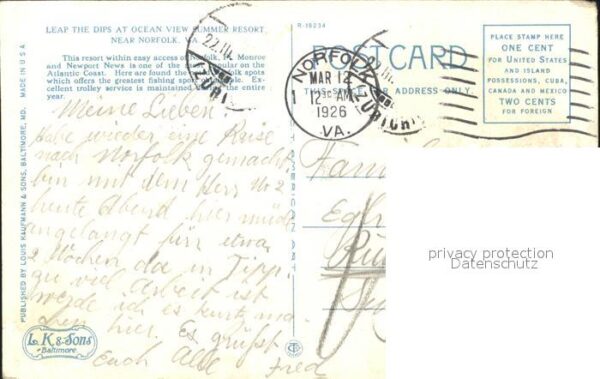 LEAP THE DIPS AT OCEAN VIEW SUMMER RESORT,
NEAR NORFOLK, VA.
This resort within easy access of Norfolk, Ft. Monroe
and Newport News is one of the most popular on the
Atlantic Coast. Here are found the best Norfolk spots
which offers the greatest fishing sport Excellent
trolley service is maintained the entire
R-16234
POSTCARD
THIS SPACE FOR ADDRESS ONLY.
PLACE STAMP HERE
ONE CENT
FOR UNITED STATES
AND ISLAND
POSSESSIONS, CUBA,
CANADA AND MEXICO
TWO CENTS
FOR FOREIGN
22.III.
NORFOLK
MAR 12
12 30 AM
1926
VA.
1
MADE IN U.S.A.
PUBLISHED BY LOUIS KAUFMANN & SONS, BALTIMORE, MD.
AMERICAN ART
Meine Lieben
Habe wieder eine Reise
nach Norfolk gemacht,
bin mit dem Herr No 2
heute Abend hier müde
angelangt für etwa
2 Wochen da in
zu viel Arbeit ist
werde ich es kurz ma-
chen hier. Es grüsst
Euch Alle Fred
Fam
L.K.&Sons
Baltimore.
privacy protection
Datenschutz